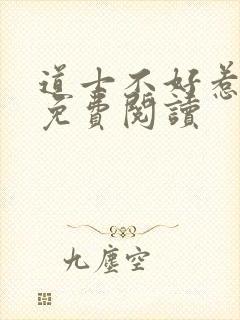 道士不好惹
免費閱讀
九塵空